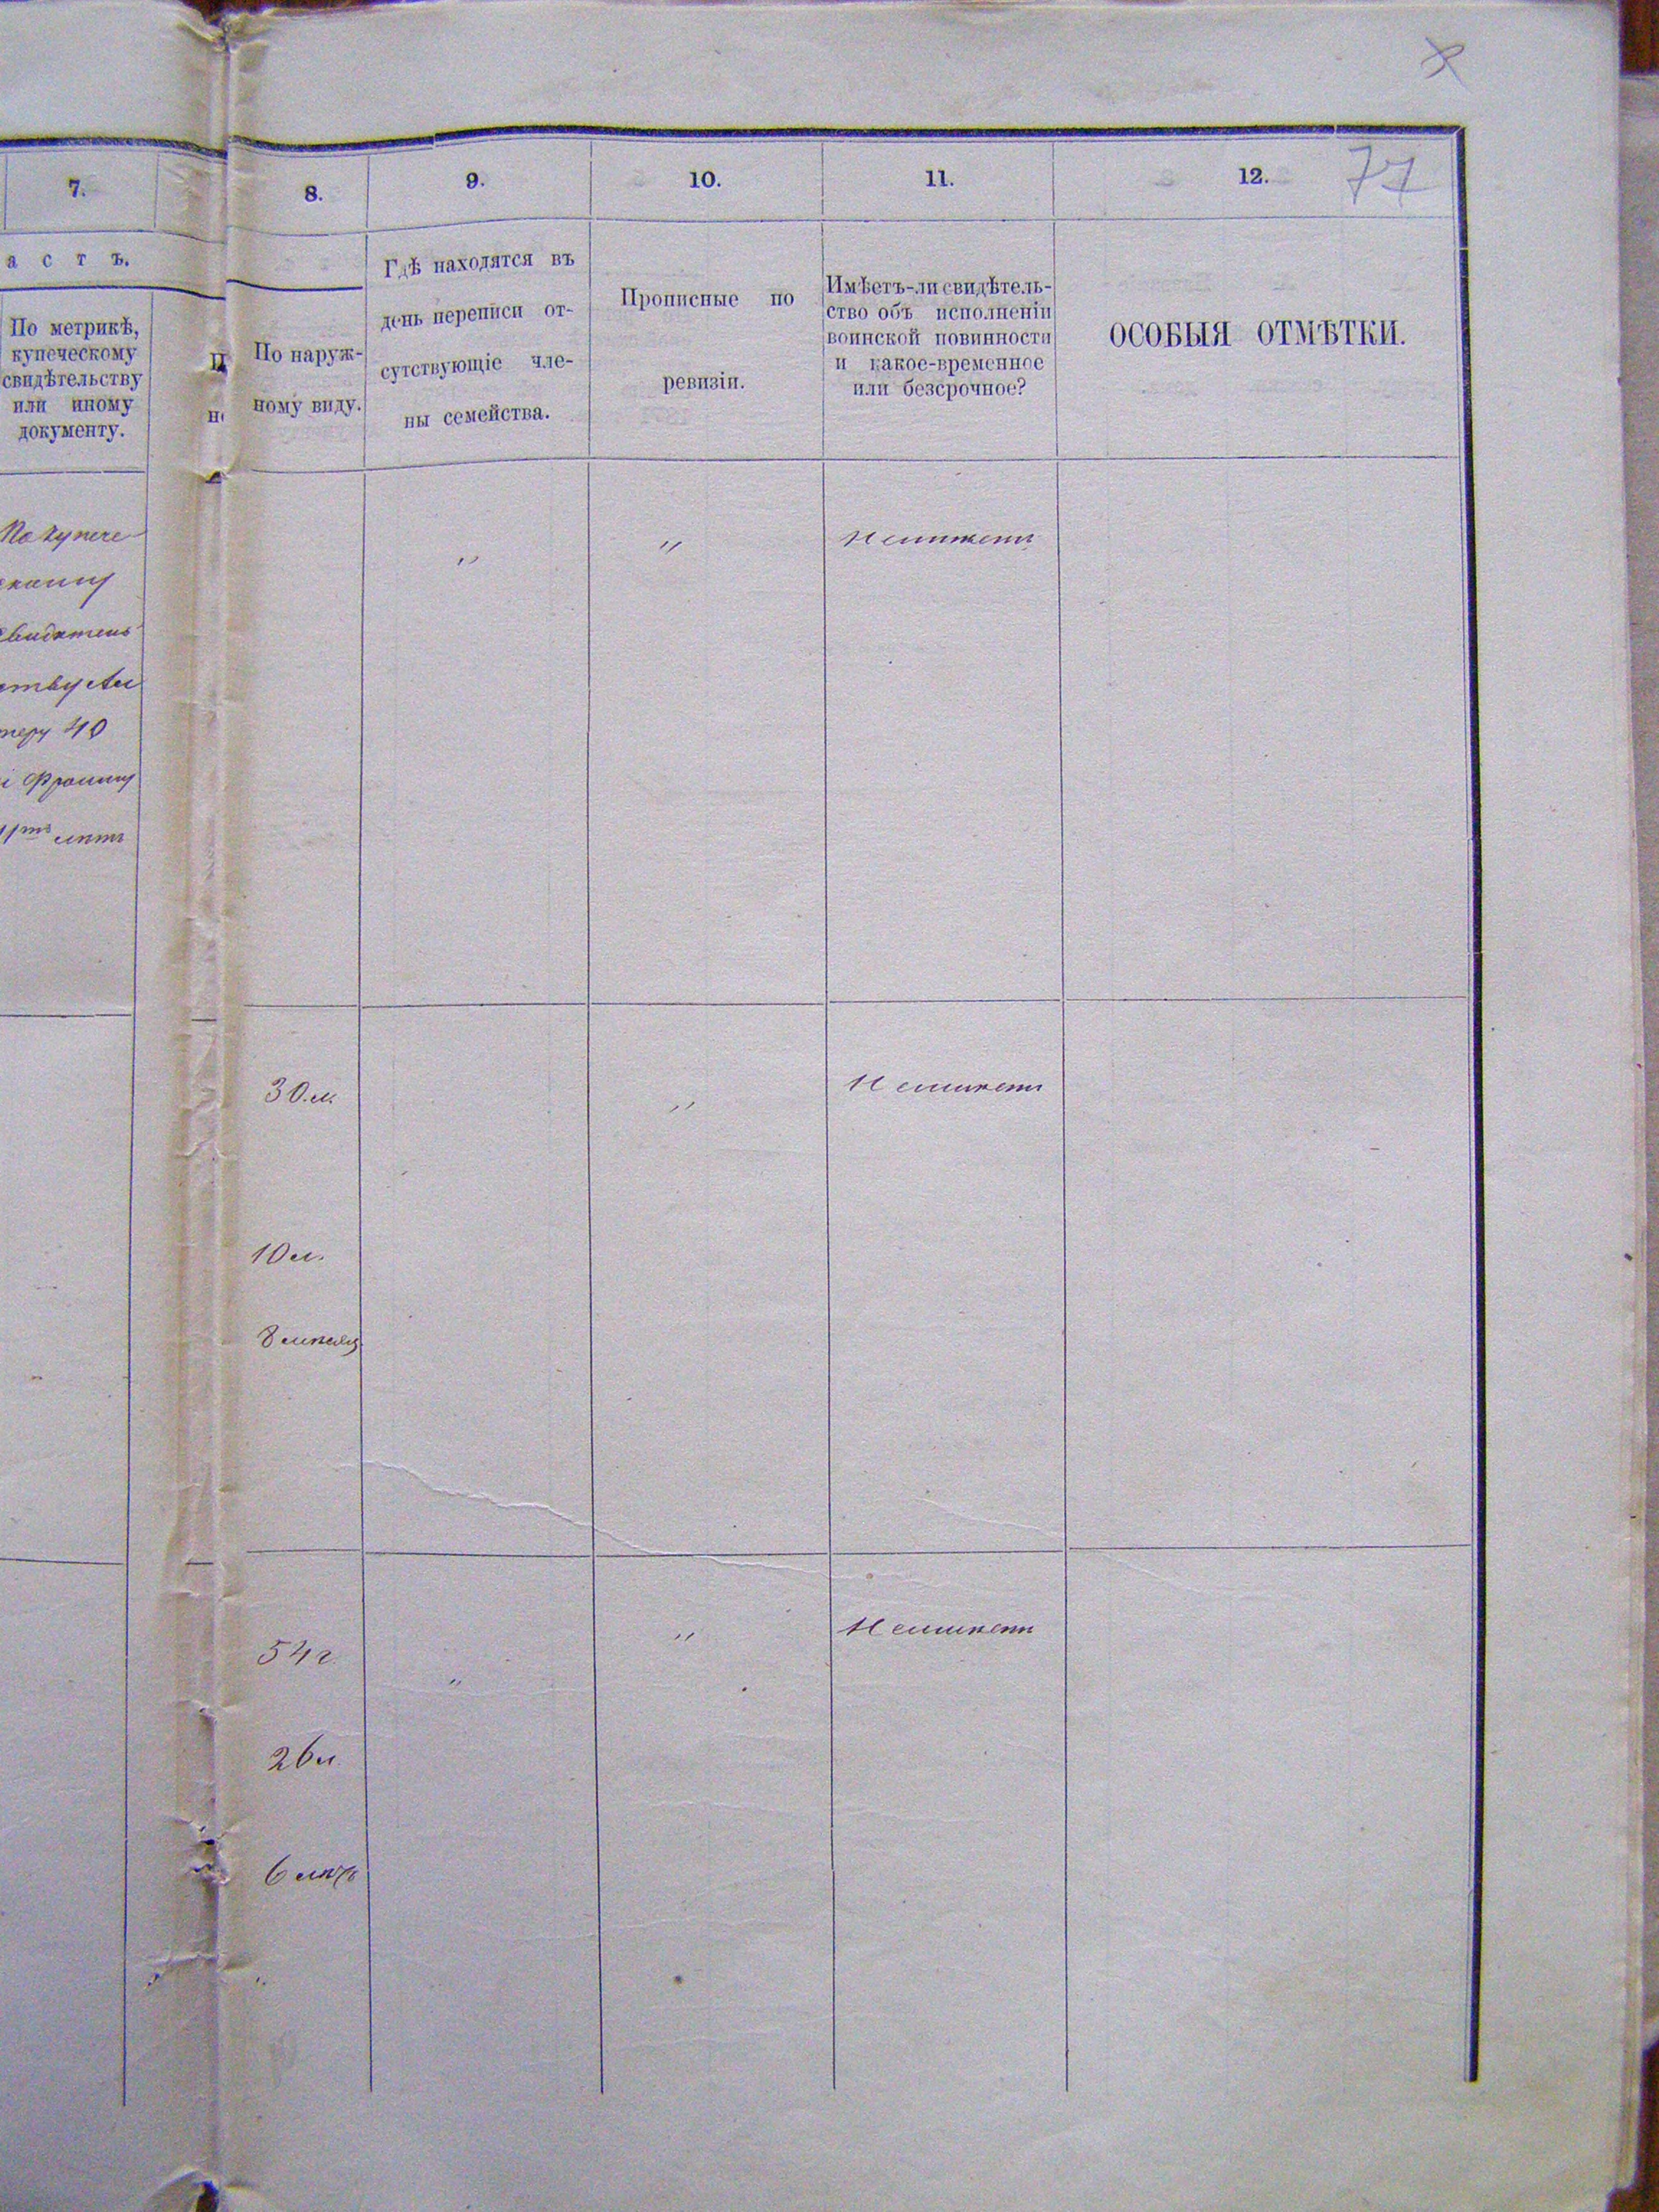 77
7.
8.
9.
10.
11.
12.
астъ.
По метрикѣ,
купеческому
свидѣтельству
или иному
документу.
По наруж-
ному виду.
Гдѣ находятся въ
день переписи от-
сутствующіе чле-
ны семейства.
Прописные по
ревизіи.
Имѣетъ-ли свидѣтель-
ство объ исполненіи
воинской повинности
и какое-временное
или безсрочное?
ОСОБЫЯ ОТМѢТКИ.
По купече
скому
свидѣтель
ству
40
Фроиму
11тъ лѣтъ
"
"
Неимѣетъ
30 л.
"
Неимѣетъ
10 л.
8 мѣсяц
54 г.
"
"
Неимѣетъ
26 л.
6